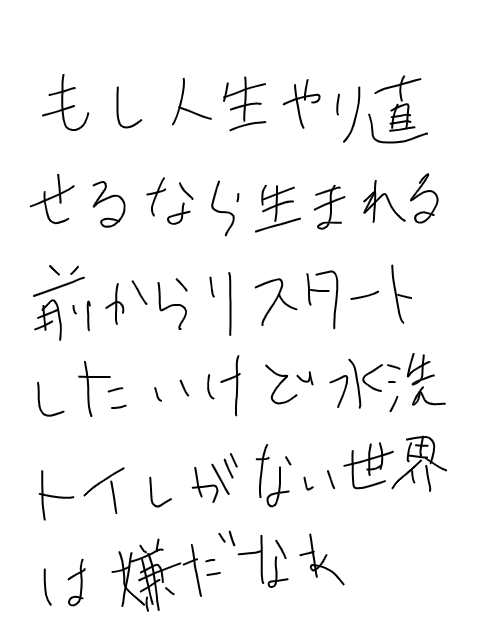 もし人生やり直
せるなら生まれる
前からリスタート
したいけど水洗
トイレがない世界
は嫌だなぁ